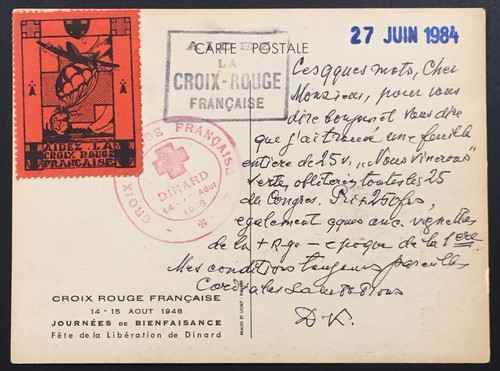 27 JUIN 1984
CARTE POSTALE
AIDEZ
LA
CROIX-ROUGE
FRANÇAISE
AIDEZ LA
CROIX ROUGE
FRANÇAISE
CROIX ROUGE FRANÇAISE
DINARD
14-15 Août
1948
Ces qques mots, Cher
Monsieur, pour vous
dire bonjour et vous dire
que j'ai trouvé une feuille
entière de 25 v. „Nous Vincrons"
verte, obliterés toutes les 25
du Congres. Prix 250 frs,
egalement qques unc. vignettes
de la +Rge - epoque de la 1ere
Mes conditions toujours pareilles
Cordiales salutations
D.K.
CROIX ROUGE FRANÇAISE
14 - 15 AOUT 1948
JOURNÉES DE BIENFAISANCE
Fête de la Libération de Dinard